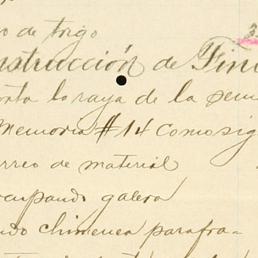 o de trigo
nstrucción de Fin
la raya de la sem
Memoria #14 como sig
rreo de material
galera
ndo chimenea para fra-